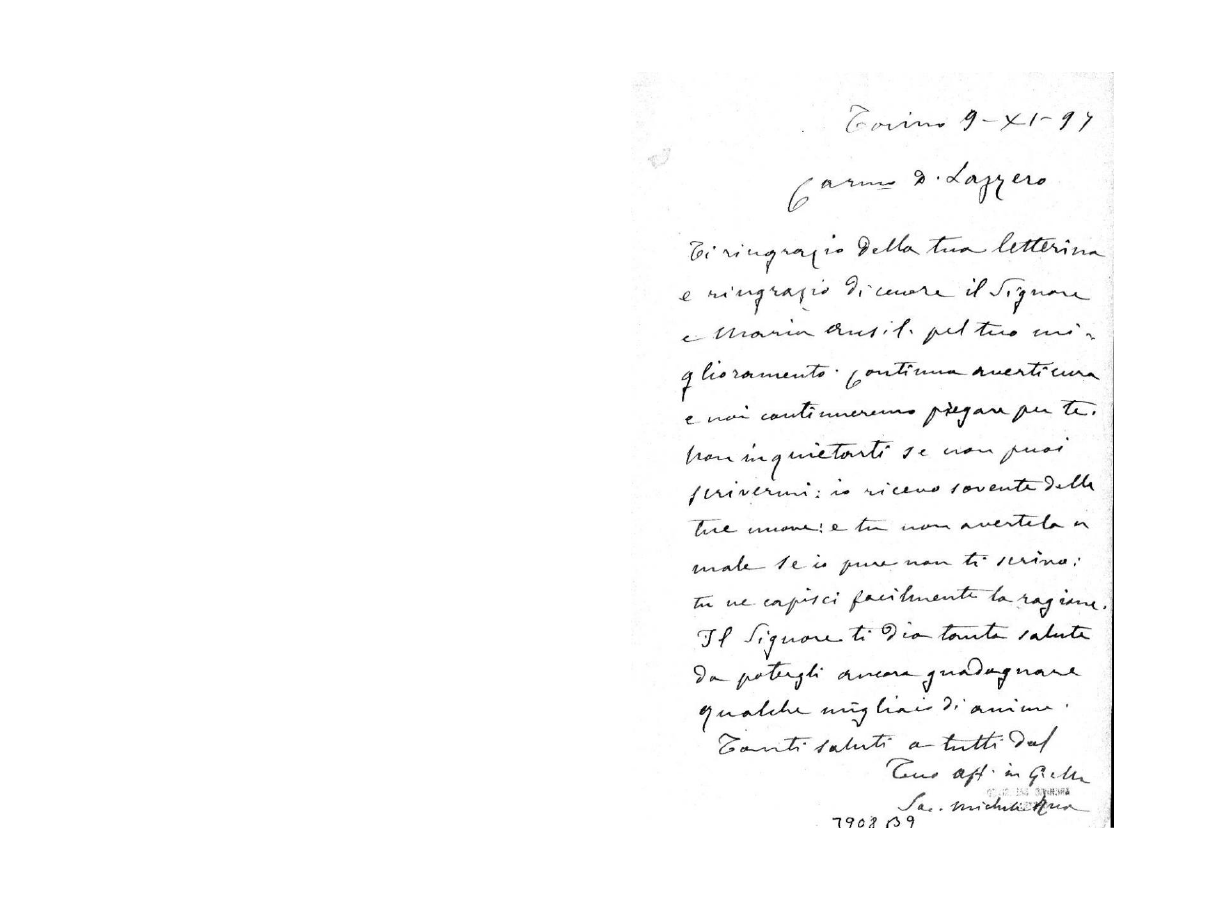 Torino 9-XI-97
Carmo D. Lazzero
Ti ringrazio della tua letterina
e ringrazio di cuore il Signore
e Maria Ausil. pel tuo mi-
glioramento. Continua averti cura
e noi continueremo pregare per te.
Non inquietarti se non puoi
scrivermi: io ricevo sovente delle
tue nuove: e tu non avertela a
male se io pure non ti scrivo:
tu ne capisci facilmente la ragione.
Il Signore ti dia tanta salute
da potergli ancora guadagnare
qualche migliaio di anime.
Tanti saluti a tutti dal
Tuo aff. in G. e M.
Sac. Michele Rua
7908 B9